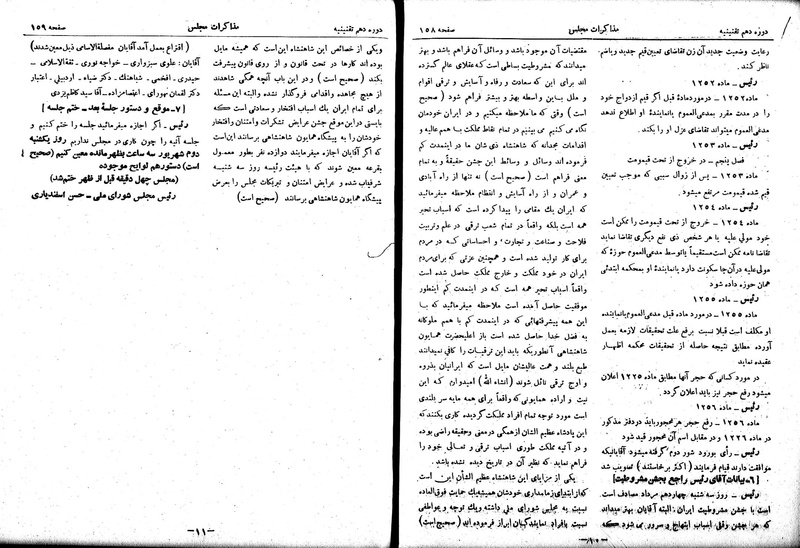 دوره دهم تقنینیه
مذاکرات مجلس
صفحه ۱۵۸
رعایت وضعیت جدید آن زن تقاضای تعیین قیم جدید و یا ضم
ناظر کنند.
رئیس – ماده ۱۲۵۲
ماده ۱۲۵۲ – در مورد ماده قبل اگر قیم ازدواج خود
را در مدت مقرر بمدعی‌العموم یا نماینده او اطلاع ندهد
مدعی‌العموم میتواند تقاضای عزل او را بکند.
رئیس – ماده ۱۲۵۳
فصل پنجم – در خروج از تحت قیمومت
ماده ۱۲۵۳ – پس از زوال سببی که موجب تعیین
قیم شده قیمومت مرتفع میشود.
رئیس – ماده ۱۲۵۴
ماده ۱۲۵۴ – خروج از تحت قیمومت را ممکن است
خود مولی علیه یا هر شخص ذی نفع دیگری تقاضا نماید
تقاضا نامه ممکن است مستقیماً یا توسط مدعی‌العموم حوزهٔ که
مولی علیه در آنجا سکونت دارد یا نمایندهٔ او بمحکمه ابتدئی
همان حوزه داده شود
رئیس – ماده ۱۲۵۵
ماده ۱۲۵۵ – در مورد ماده قبل مدعی‌العموم یا نماینده
او مکلف است قبلا نسبت برفع علت تحقیقات لازمه بعمل
آورده مطابق نتیجه حاصله از تحقیقات محکمه اظهار
عقیده نماید
در مورد کسانی که حجر آنها مطابق ماده ۱۲۲۵ اعلان
میشود رفع حجر نیز باید اعلان گردد.
رئیس – ماده ۱۲۵۶
ماده ۱۲۵۶ – رفع حجر هر محجور باید در دفتر مذکور
در ماده ۱۲۲۶ و در مقابل اسم آن محجور قید شود
رئیس – رأی بورود شور دوم گرفته میشود آقایانیکه
موافقت دارند قیام فرمایند (اکثر برخاستند) تصویب شد
[۶- بیانات آقای رئیس راجع بجشن مشروطیت]
رئیس – روز سه شنبه چهاردهم مرداد مصادف است
است با جشن مشروطیت ایران. البته آقایان بهتر میدانند
که هر جشن وقتی اسباب ابتهاج و سرور می شود که
مقتضیات آن موجود باشد و وسائل آن فراهم باشد و بهتر
میدانند که مشروطیت بساطی است که عقلای عالم گسترده
اند برای این که سعادت و رفاه و آسایش و ترقی اقوام
و ملل باین واسطه بهتر و بیشتر فراهم شود (صحیح
است) وقتی که ما ملاحظه میکنیم و در ایران خودمان
نگاه می کنیم می بینیم در تمام نقاط مملکت با همم عالیه و
اقدامات مجدانه که شاهنشاه ذی شان ما در اینمدت کم
فرموده اند وسائل و وسائط این جشن حقیقة و به تمام
معنی فراهم است (صحیح است) نه تنها از راه آبادی
و عمران و از راه آسایش و انتظام ملاحظه میفرمائید
که ایران یك مقامی را پیدا کرده است که اسباب تحیر
همه است بلکه واقعاً در تمام شعب ترقی در علم و تربیت
فلاحت و صناعت و تجارت و احساساتی که در مردم
برای کار تولید شده است و همچنین عزتی که برای مردم
ایران در خود مملکت و خارج مملکت حاصل شده است
واقعاً اسباب تحیر همه است که در اینمدت کم اینطور
موفقیت حاصل آمده است ملاحظه میفرمائید که با
این همه پیشرفتهائی که در اینمدت کم با همم ملوکانه
به فضل خدا حاصل شده است باز اعلیحضرت همایون
شاهنشاهی آنطوریکه باید این ترقیات را کافی نمیدانند
طبع بلند و همت عالیشان مایل است که ایرانیان بذروه
و اوج ترقی نائل شوند (انشاء الله) امیدوارم که این
نیت و اراده همایونی که واقعاً برای همه مایه سر بلندی
است مورد توجه تمام افراد مملکت گردیده کاری بکنند که
این پادشاه عظیم الشان از همگی در معنی و حقیقه راضی بوده
و در آتیه مملکت طوری اسباب ترقی و تعالی خود را
فراهم نماید که نظیر آن در تاریخ دیده نشده باشد.
یکی از مزایای این شاهنشاه عظیم الشأن این است
که از ابتدای زمامداری خودشان همیشه یك حمایت فوق‌العاده
نسبت به مجلس شورای ملی داشته و یك توجه و عواطفی
نسبت بافراد نمایندگان ابراز فرموده اند (صحیح است)
–۱۰–
دوره دهم تقنینیه
مذاکرات مجلس
صفحه ۱۵۹
ویکی از خصائص این شاهنشاه این است که همیشه مایل
بوده اند کارها در تحت قانون و از روی قانون پیشرفت
بکند (صحیح است) و در این باب آنچه ممکن شده‌اند
از هیچ مجاهده و اقدامی فروگذار نشده والبته این مسئله
برای تمام ایران یك اسباب افتخار و سعادتی است که
بایستی در این موقع جشن عرایض تشکرات و امتنان و افتخار
خودشان را به پیشگاه همایون شاهنشاهی برسانند این است
که اگر آقایان اجازه میفرمایند دوازده نفر بطور معمول
بقرعه معین شوند که با هیئت رئیسه روز سه شنبه
شرفیاب شده و عرایض امتنان و تبریکات مجلس را بعرض
پیشگاه همایون شاهنشاهی برسانند (صحیح است)
(اقتراع بعمل آمد آقایان مفصلةالاسامی ذیل معین شدند)
آقایان: علوی سبزواری – خواجه نوری – ثقةالاسلامی –
حیدری – افخمی – شاهنك – دکتر ضیاء – اردبیلی – اعتبار
دکتر لقمان نهورای – اعتصام‌زاده – آقا سید کاظم یزدی
[۷- موقع و دستور جلسهٔ بعد – ختم جلسه]
رئیس – اگر اجازه میفرمائید جلسه را ختم کنیم و
جلسه آتیه را چون کاری در مجلس نداریم روز یکشنبه
دوم شهریور سه ساعت بظهر مانده معین کنیم (صحیح
است) دستور هم لوایح موجوده
(مجلس چهل دقیقه قبل از ظهر ختم شد)
رئیس مجلس شورای ملی – حسن اسفندیاری
–۱۱–